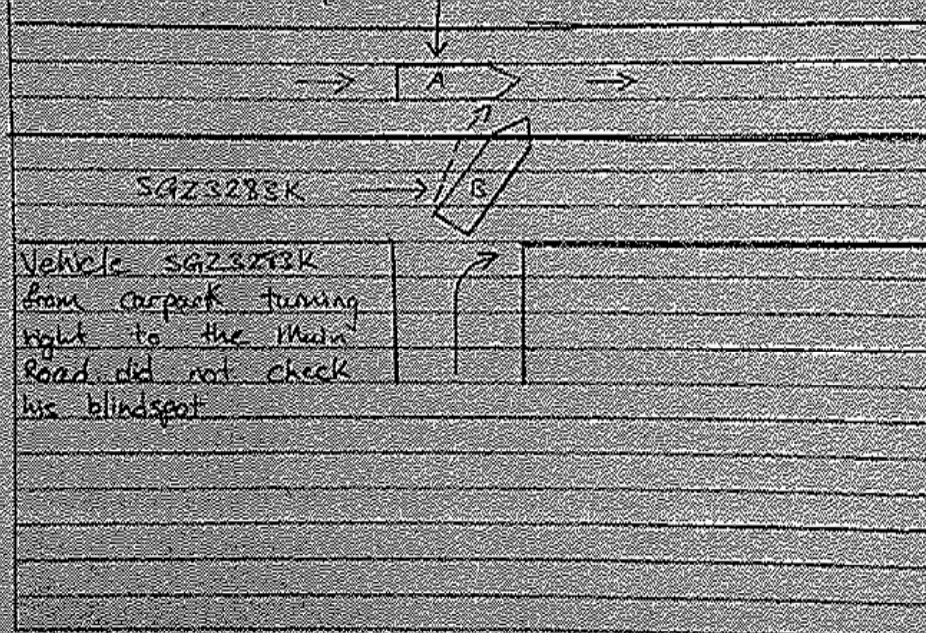 A
SGZ3283K
B
Vehicle SGZ3283K
from carpark turning
right to the Main
Road did not check
his blindspot